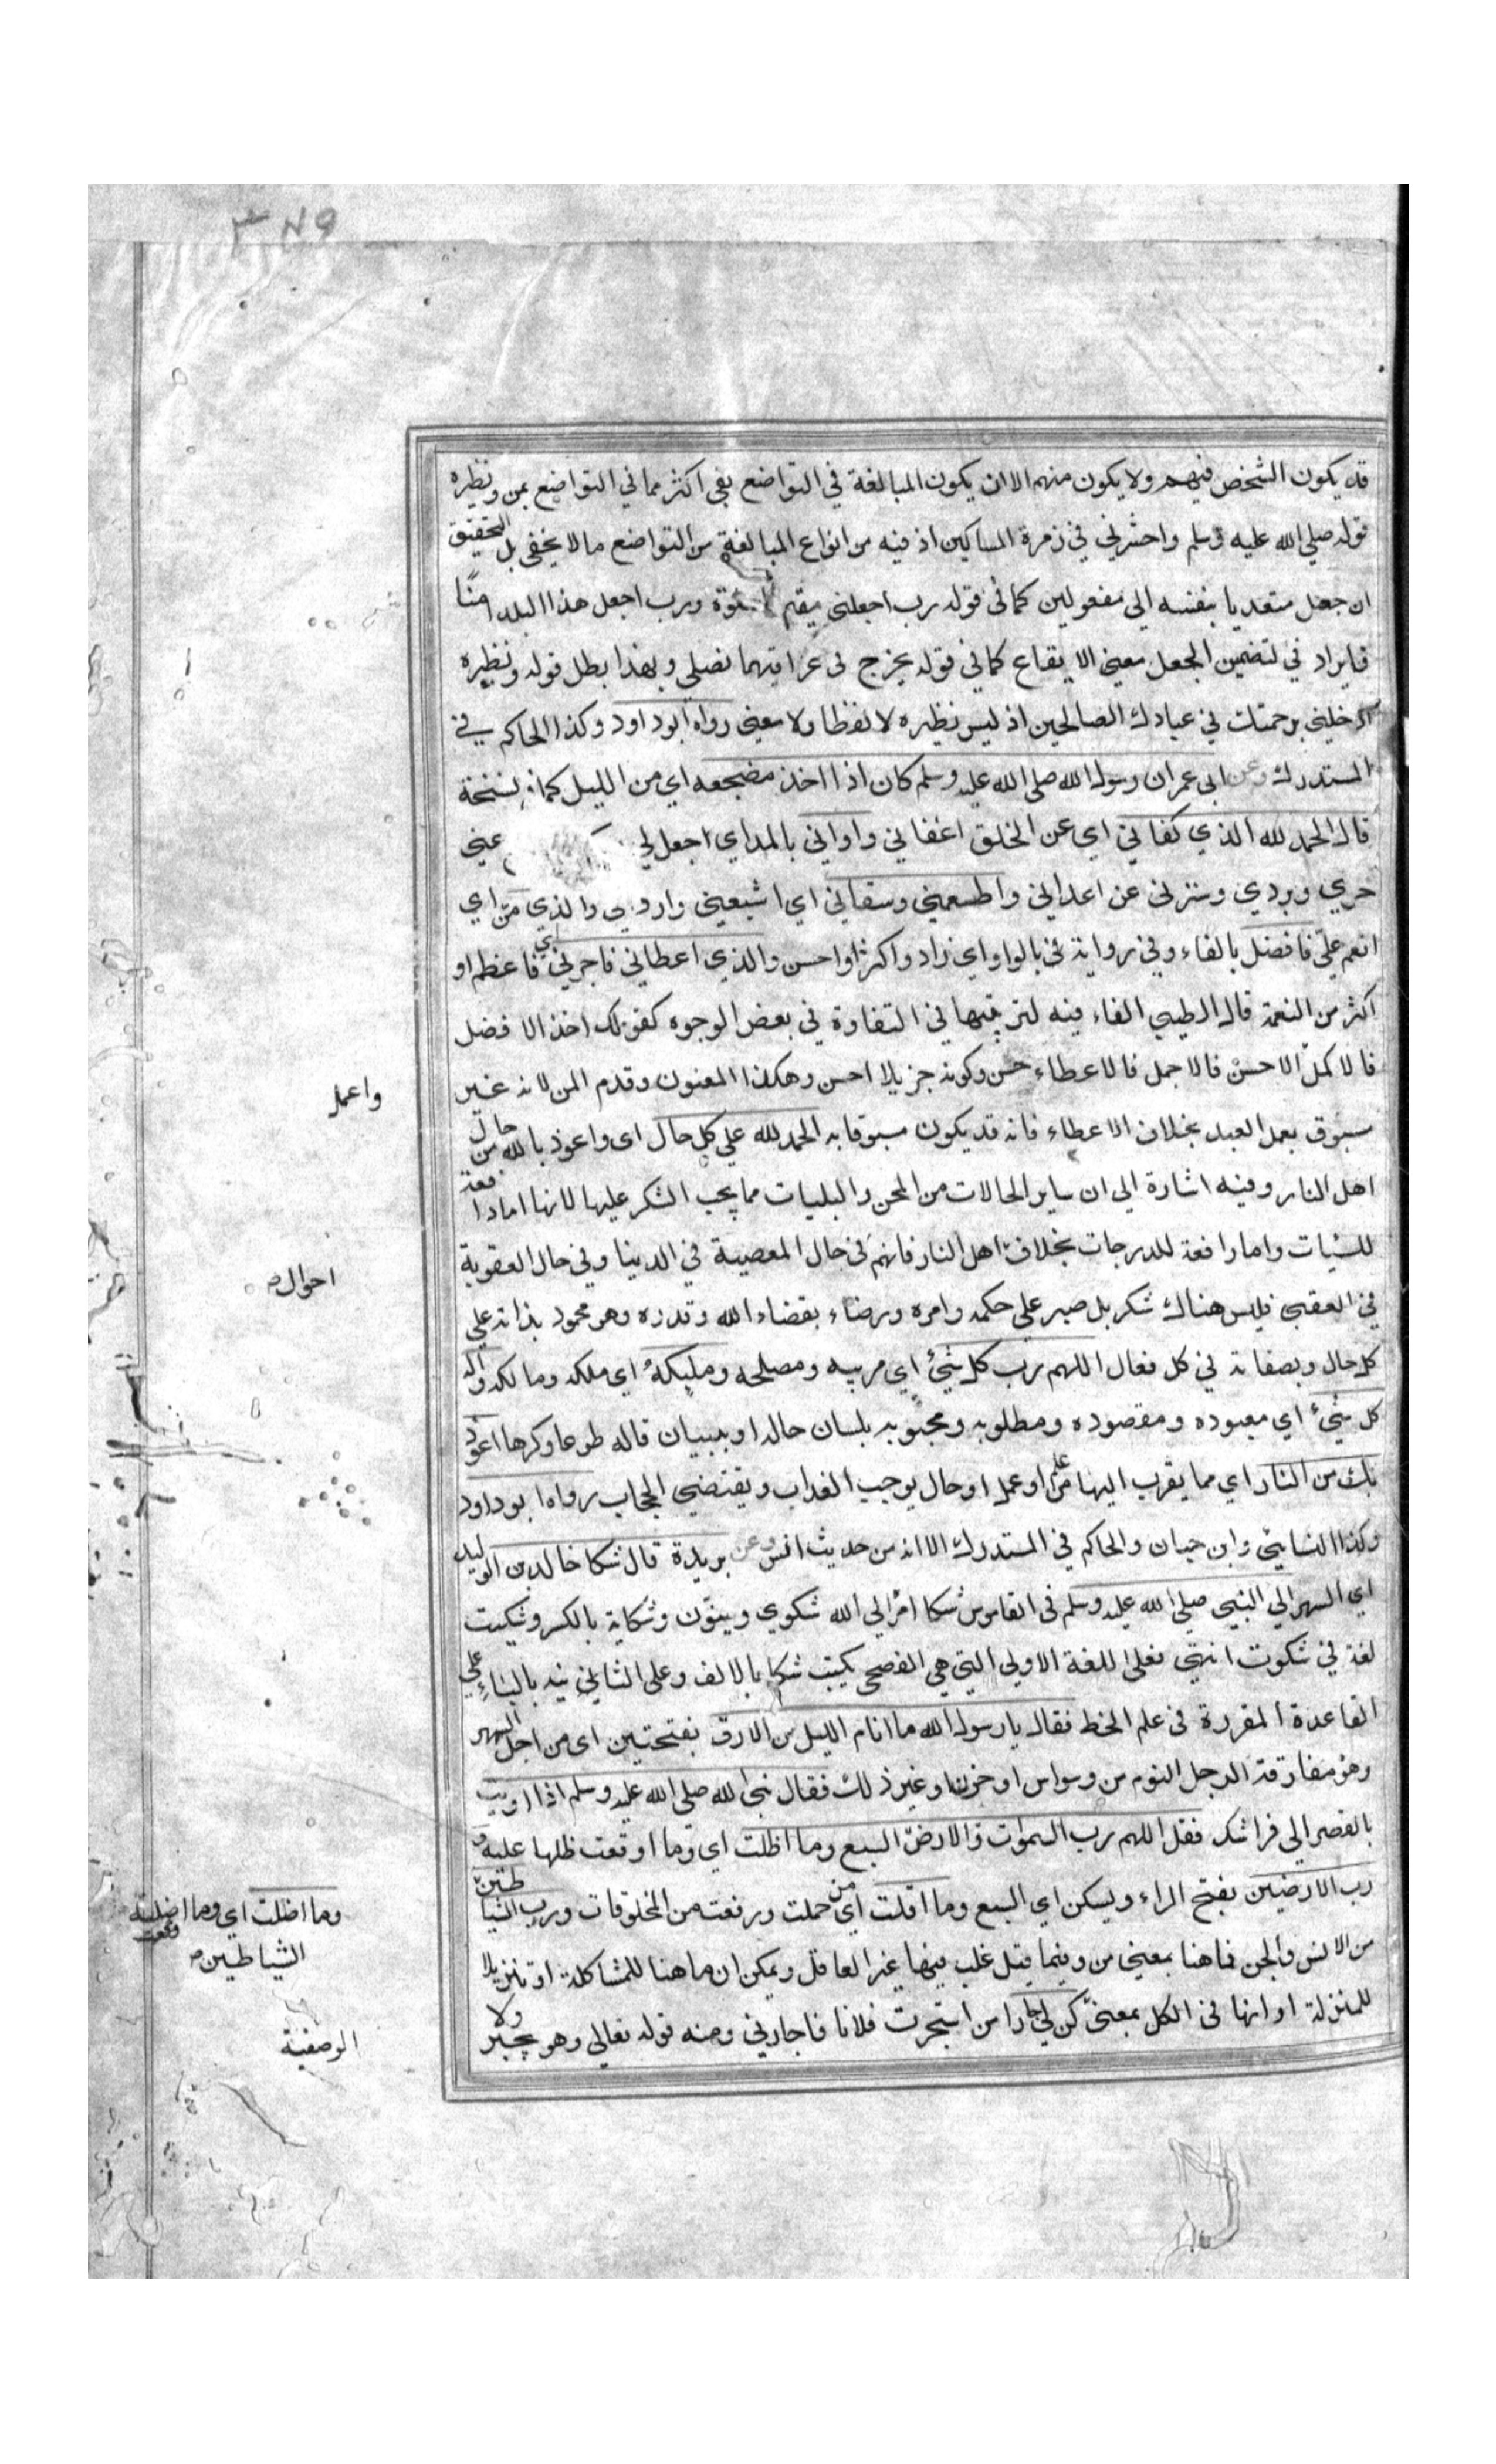 ٣٧٩
قد يكون الشخص فيهم ولا يكون منهم الا ان يكون المبالغة في التواضع بفي اكثر مما في التواضع بمن ونظيره
قوله صلي الله عليه وسلم واحشرني في زمرة المساكين اذ فيه من انواع المبالغة من التواضع ما لا يخفي بل التحقيق
ان جعل متعديا بنفسه الي مفعولين كما في قوله رب اجعلني مقيم الصلوة ورب اجعل هذا البلد امنًا
فايراد في لتضمين الجعل معني الايقاع كما في قوله يجرح في عراقيبها نصلي وبهذا بطل قوله ونظيره
ادخلني برحمتك في عبادك الصالحين اذ ليس نظيره لا لفظا ولا معني رواه ابو داود وكذا الحاكم في
المستدرك وعن ابي عمران رسول الله صلي الله عليه وسلم كان اذا اخذ مضجعه اي من الليل كما في نسخة
قال الحمد لله الذي كفاني اي عن الخلق اغفاني واواني بالمد اي اجعل لي عني
حري وبردي وسترني عن اعدايي واطعمني وسقاني اي اشبعني وارواني والذي منّ اي
انعم عليّ فافضل بالفاء وفي رواية في بالواو اي زاد واكثر او احسن والذي اعطاني فاجزل اي فاعظم او
اكثر من النعمة قال الطيبي الفاء فيه لترتيبها في التفاوة في بعض الوجوه كقولك اخذ الافضل
فالاكمل الاحسن فالاجمل فالاعطاء حسن وكونه جزيلا احسن وهكذا المعنون وقدم المن لانه غير
مسبوق بعمل العبد بخلاف الاعطاء فانه قد يكون مسبوقا به الحمد لله علي كل حال اي واعوذ بالله من حال
اهل النار وفيه اشارة الي ان ساير الحالات من المحن والبليات مما يجب الشكر عليها لانها اما دافعة
للسيات واما رافعة للدرجات بخلاف اهل النار فانهم في حال المعصية في الدينا وفي حال العقوبة
في العقبي فليس هناك شكر بل صبر علي حكمه وامره ورضاء بقضاء الله وقدره وهو محمود بذاته علي
كل حال وبصفاته في كل فعال اللهم رب كل شيء اي مربيه ومصلحه ومليكه اي ملكه ومالكه واله
كل شيء اي معبوده ومقصوده ومطلوبه ومحبوبه بلسان حاله او ببيان قاله طوعا وكرها اعوذ
بك من النار اي مما يقرب اليها من علم او عمل او حال يوجب العذاب ويقتضي الحجاب رواه ابو داود
وكذا النسايي وابن حبان والحاكم في المستدرك الا انه من حديث انس وعن بريدة قال شكا خالد بن الوليد
اي السهر الي النبي صلي الله عليه وسلم في القاموس شكا امره الي الله شكوي وينوّن وشكاية بالكسر وشكيت
لغة في شكوت انتهي فعلي اللغة الاولي التي هي الفصحي يكتب شكا بالالف وعلي الثاني يد بالياء علي
القاعدة المقررة في علم الخط فقال يا رسول الله ما انام الليل من الارق بفتحتين اي من اجل السهر
وهو مفارقة الرجل النوم من وسواس او حزن او غير ذلك فقال نبي الله صلي الله عليه وسلم اذا اويت
بالقصر الي فراشك فقل اللهم رب السموات والارض السبع وما اظلت اي وما اوقعت ظلها عليه و
رب الارضين بفتح الراء ويسكن اي السبع وما اقلت اي من حملت ورفعته من المخلوقات ورب الشياطين
من الانس والجن فما هنا بمعني من وفيما قبل غلب فيها غير العاقل ويمكن ان ما هنا للمشاكلة او تنزيلا
للمنزلة او انها في الكل بمعني كن لي جارا من استجرت فلانا فاجارني ومنه قوله تعالي وهو يجير ولا
واعمل
احوال
وما اضلت اي وما اضلت
الشياطين
الوصفية